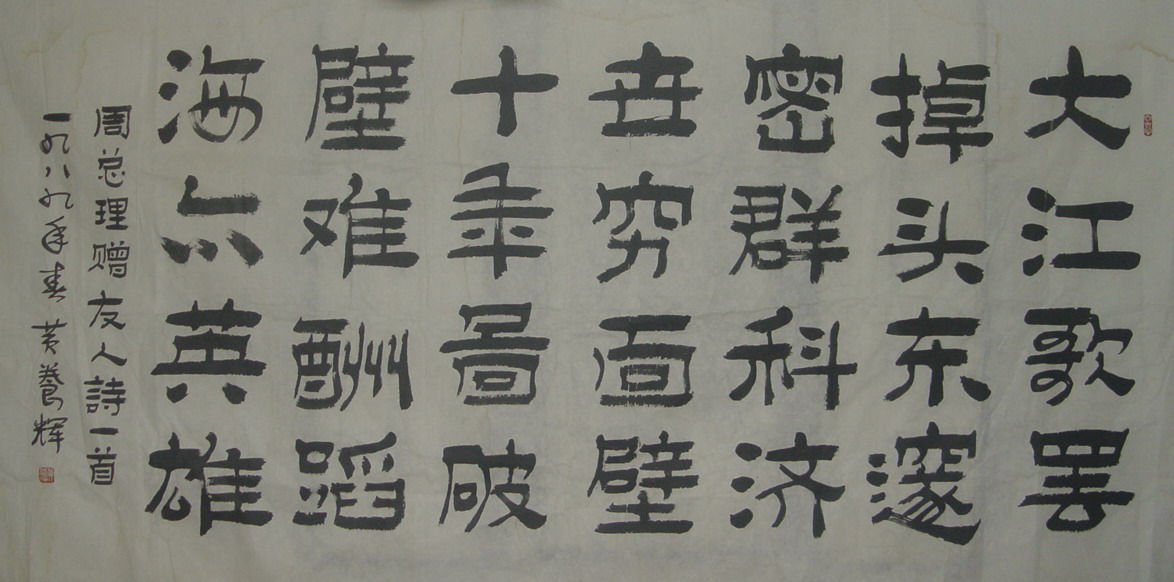 大江歌罢
掉头东邃
密群科济
世穷面壁
十年啚破
壁难酬蹈
海亦英雄
周总理赠友人詩一首
一九八九年春 黄養辉